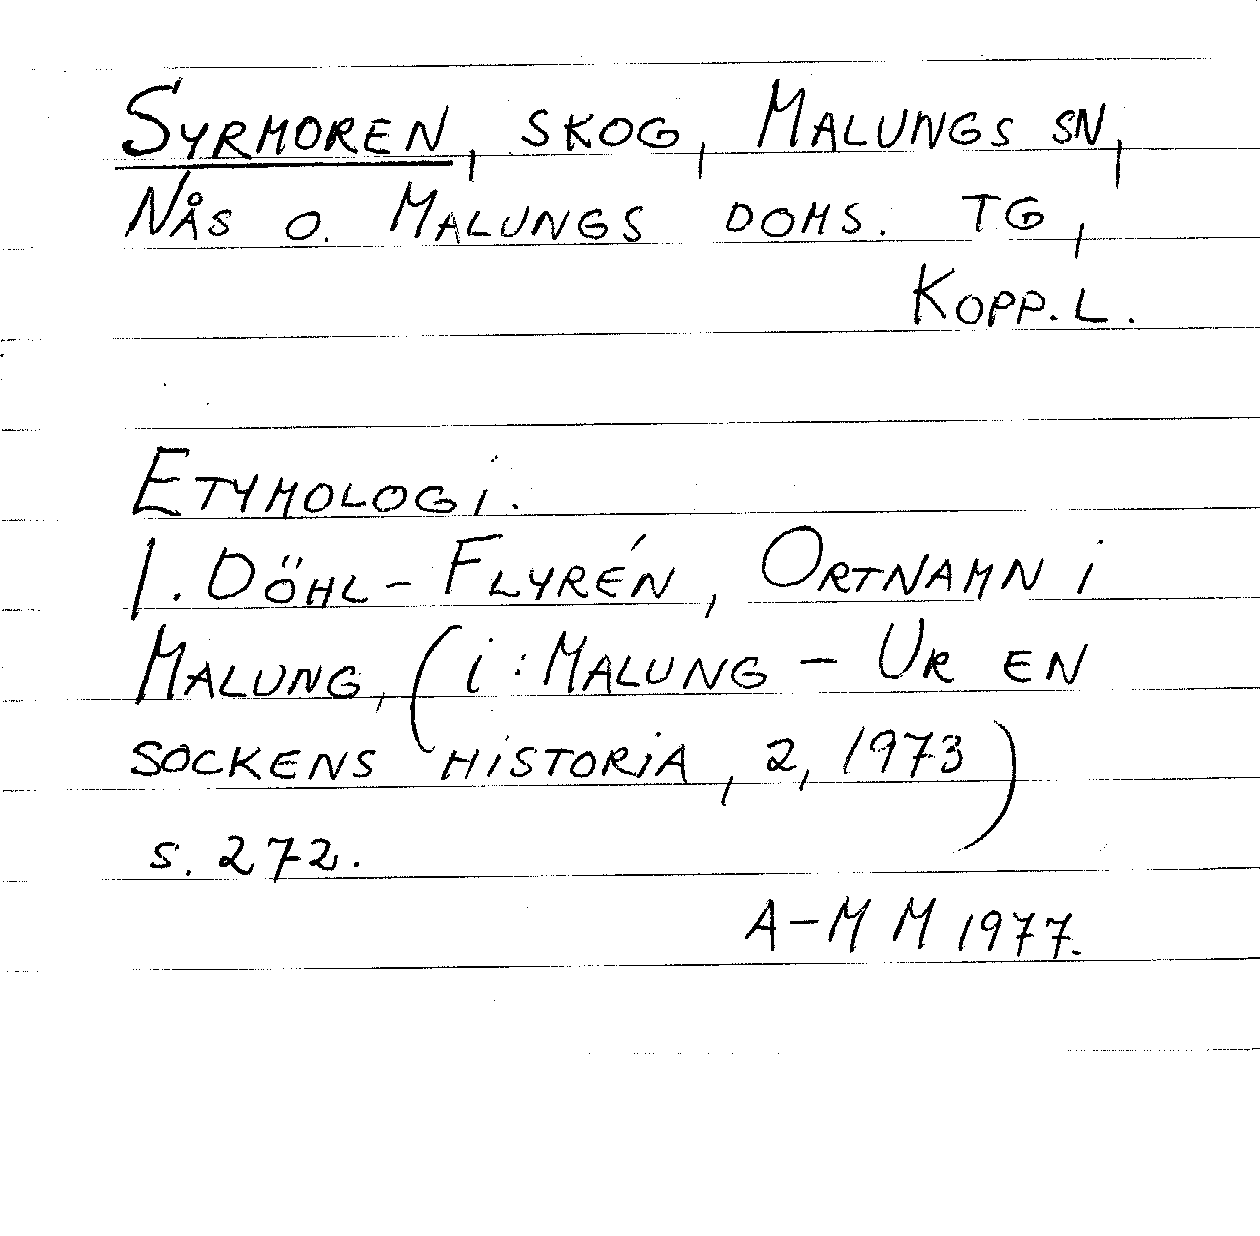 SYRMOREN, SKOG, MALUNGS SN,
NÅS O. MALUNGS DOMS. TG,
KOPP. L.
ETYMOLOGI.
I. DÖHL-FLYRÉN, ORTNAMN i
MALUNG, (i: MALUNG – UR EN
SOCKENS HISTORIA, 2, 1973)
s. 272.
A-M M 1977.